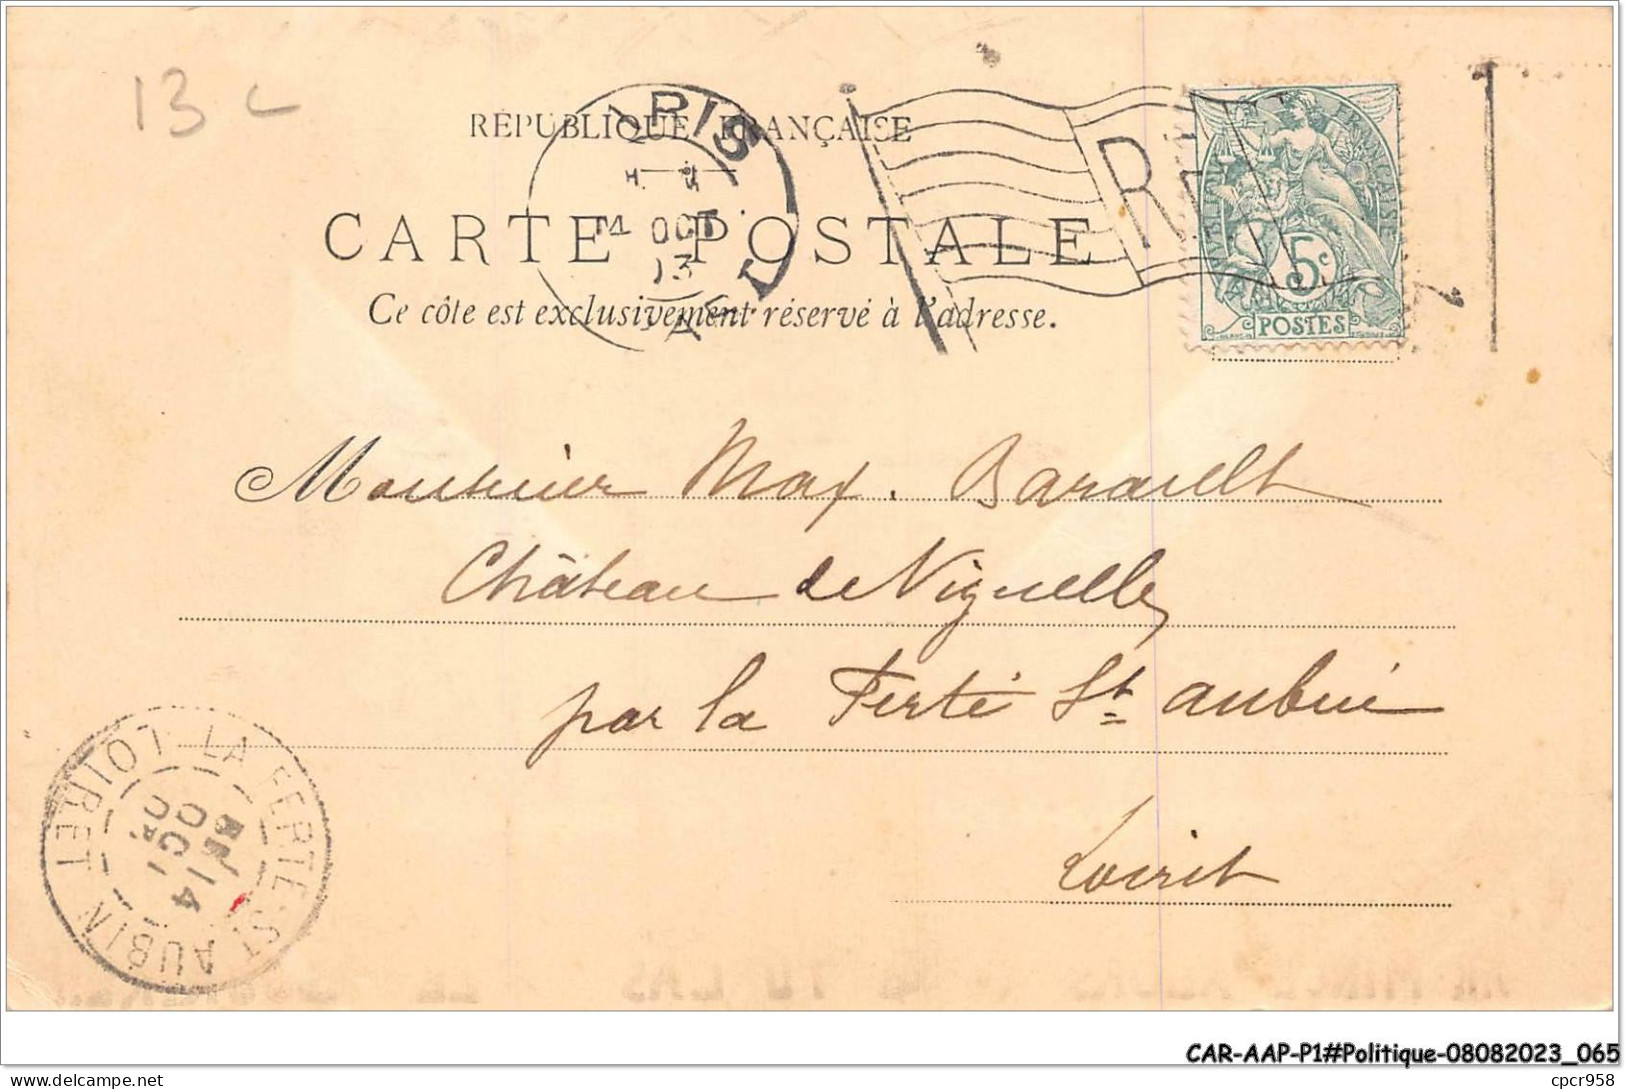 13 c
RÉPUBLIQUE FRANÇAISE
PARIS
OCT
13
RF
RÉPUBLIQUE FRANÇAISE
5c
POSTES
CARTE POSTALE
Ce côté est exclusivement réservé à l'adresse.
Monsieur Max. Barault
Château de Vignelles
par la Ferté St aubin
Loiret
LA FERTE-ST AUBIN LOIRET
14
OCT
CAR-AAP-P1#Politique-08082023_065
cpcr958